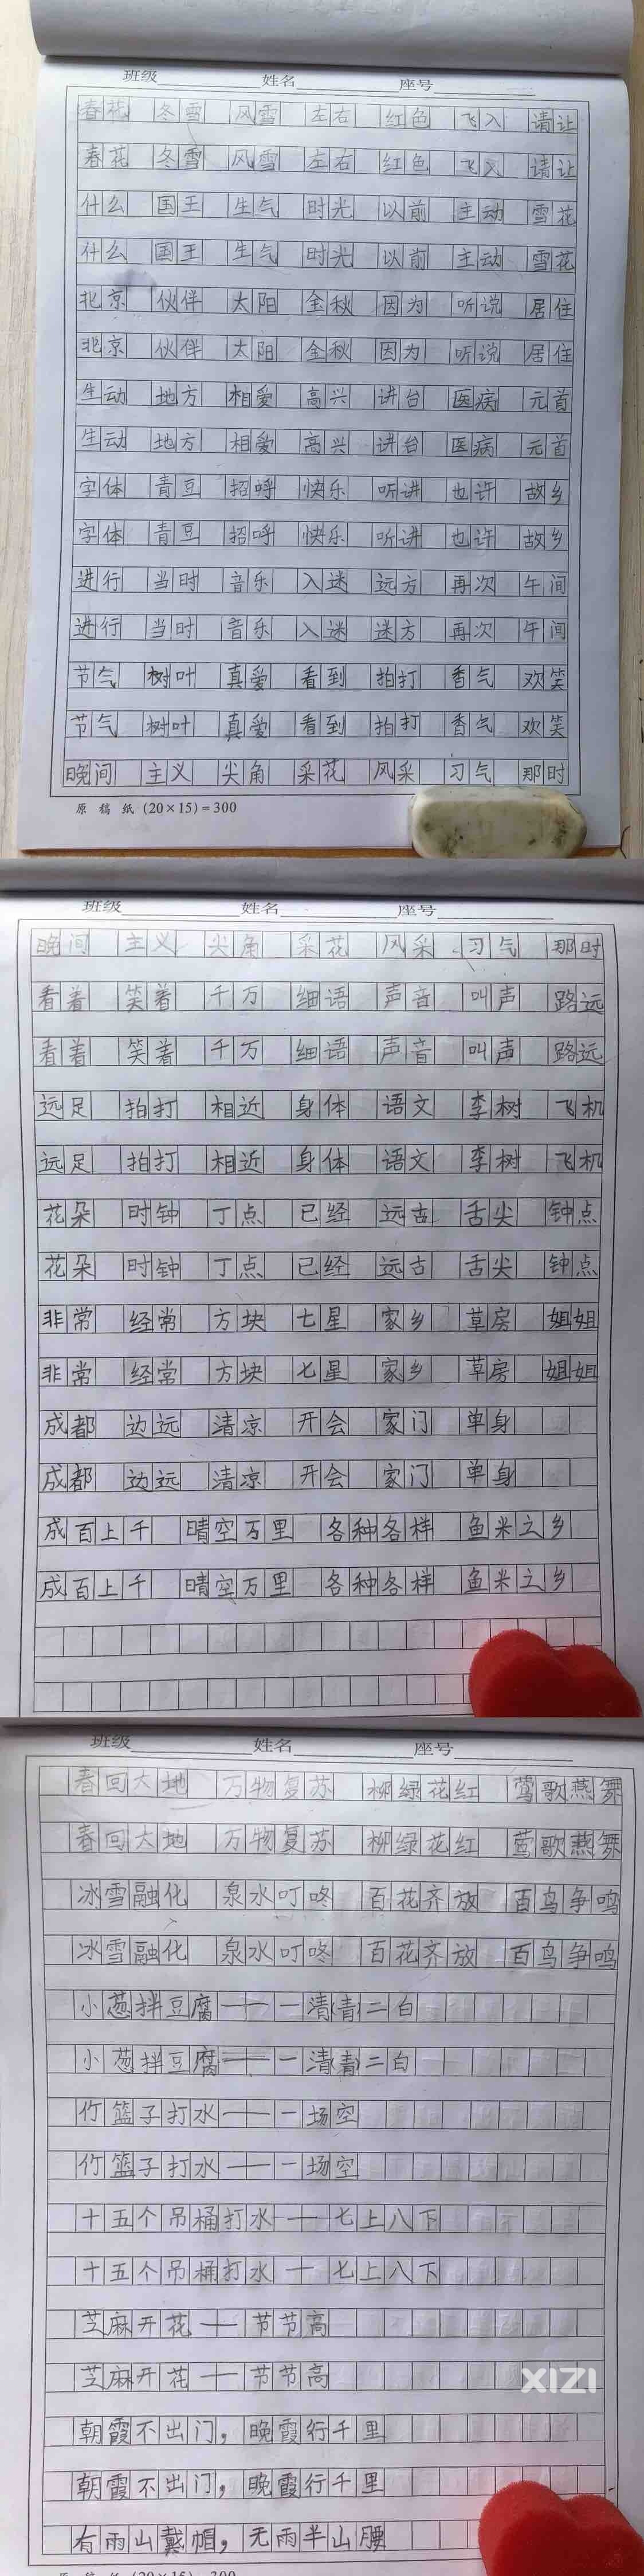 班级 姓名 座号
春花 冬雪 风雪 左右 红色 飞入 请让
春花 冬雪 风雪 左右 红色 飞入 请让
什么 国王 生气 时光 以前 主动 雪花
什么 国王 生气 时光 以前 主动 雪花
北京 伙伴 太阳 金秋 因为 听说 居住
北京 伙伴 太阳 金秋 因为 听说 居住
生动 地方 相爱 高兴 讲台 医病 元首
生动 地方 相爱 高兴 讲台 医病 元首
字体 青豆 招呼 快乐 听讲 也许 故乡
字体 青豆 招呼 快乐 听讲 也许 故乡
进行 当时 音乐 入迷 远方 再次 午间
进行 当时 音乐 入迷 迷方 再次 午间
节气 树叶 真爱 看到 拍打 香气 欢笑
节气 树叶 真爱 看到 拍打 香气 欢笑
晚间 主义 尖角 采花 风采 习气 那时
原稿纸(20×15)=300
班级 姓名 座号
晚间 主义 尖角 采花 风采 习气 那时
看着 笑着 千万 细语 声音 叫声 路远
看着 笑着 千万 细语 声音 叫声 路远
远足 拍打 相近 身体 语文 李树 飞机
远足 拍打 相近 身体 语文 李树 飞机
花朵 时钟 丁点 已经 远古 舌尖 钟点
花朵 时钟 丁点 已经 远古 舌尖 钟点
非常 经常 方块 七星 家乡 草房 姐姐
非常 经常 方块 七星 家乡 草房 姐姐
成都 边远 清凉 开会 家门 单身
成都 边远 清凉 开会 家门 单身
成百上千 晴空万里 各种各样 鱼米之乡
成百上千 晴空万里 各种各样 鱼米之乡
班级 姓名 座号
春回大地 万物复苏 柳绿花红 莺歌燕舞
春回大地 万物复苏 柳绿花红 莺歌燕舞
冰雪融化 泉水叮咚 百花齐放 百鸟争鸣
冰雪融化 泉水叮咚 百花齐放 百鸟争鸣
小葱拌豆腐——一清(青)二白
小葱拌豆腐——一清(青)二白
竹篮子打水——一场空
竹篮子打水——一场空
十五个吊桶打水—七上八下
十五个吊桶打水—七上八下
芝麻开花—节节高
芝麻开花—节节高
朝霞不出门，晚霞行千里
朝霞不出门，晚霞行千里
有雨山戴帽，无雨半山腰
原稿纸(20×15)=300
XIZI